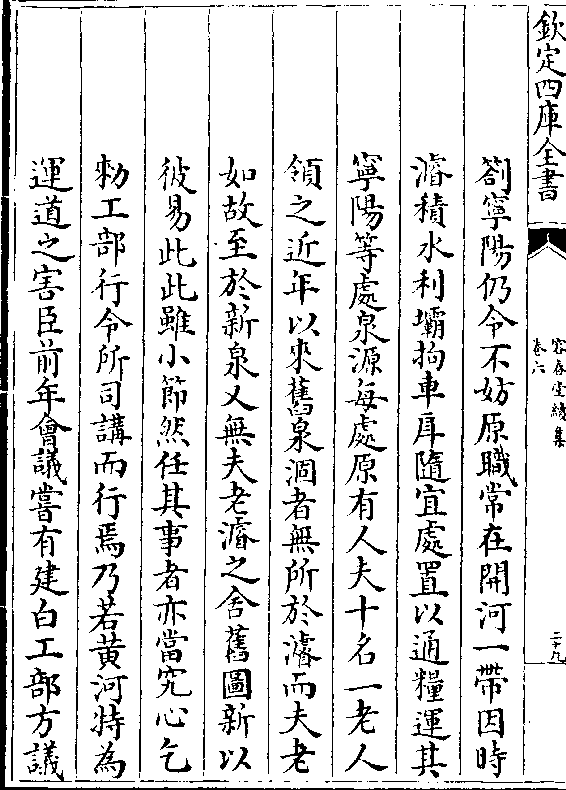 欽定四庫全書
容春堂續集
卷六
二十九
劄寧陽仍令不妨原職常在開河一帶因時
濬積水利壩拘車戽隨宜處置以通糧運其
寧陽等處泉源每處原有人夫十名一老人
領之近年以來舊泉涸者無所於濬而夫老
如故至於新泉又無夫老濬之舍舊圖新以
彼易此此雖小節然任其事者亦當究心乞
勅工部行令所司講而行焉乃若黄河特為
運道之害臣前年會議嘗有建白工部方議